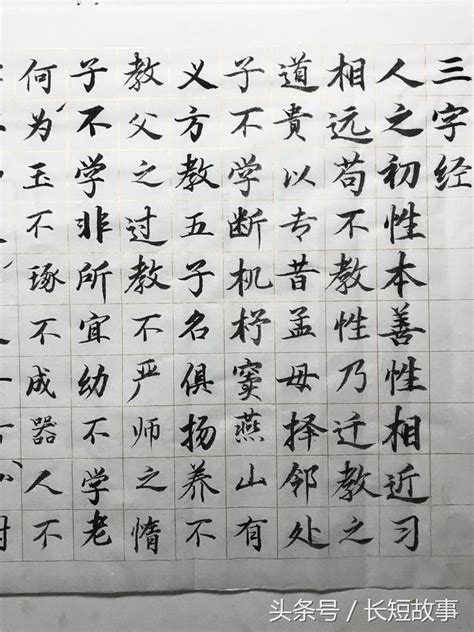 三字经
人之初性本善性相近习
相远苟不教性乃迁教之
道貴以专昔孟母择邻处
子不学断机杼窦燕山有
义方教五子名俱扬养不
教父之过教不严师之惰
子不学非所宜幼不学老
何为玉不琢不成器人不
头条号 / 长短故事